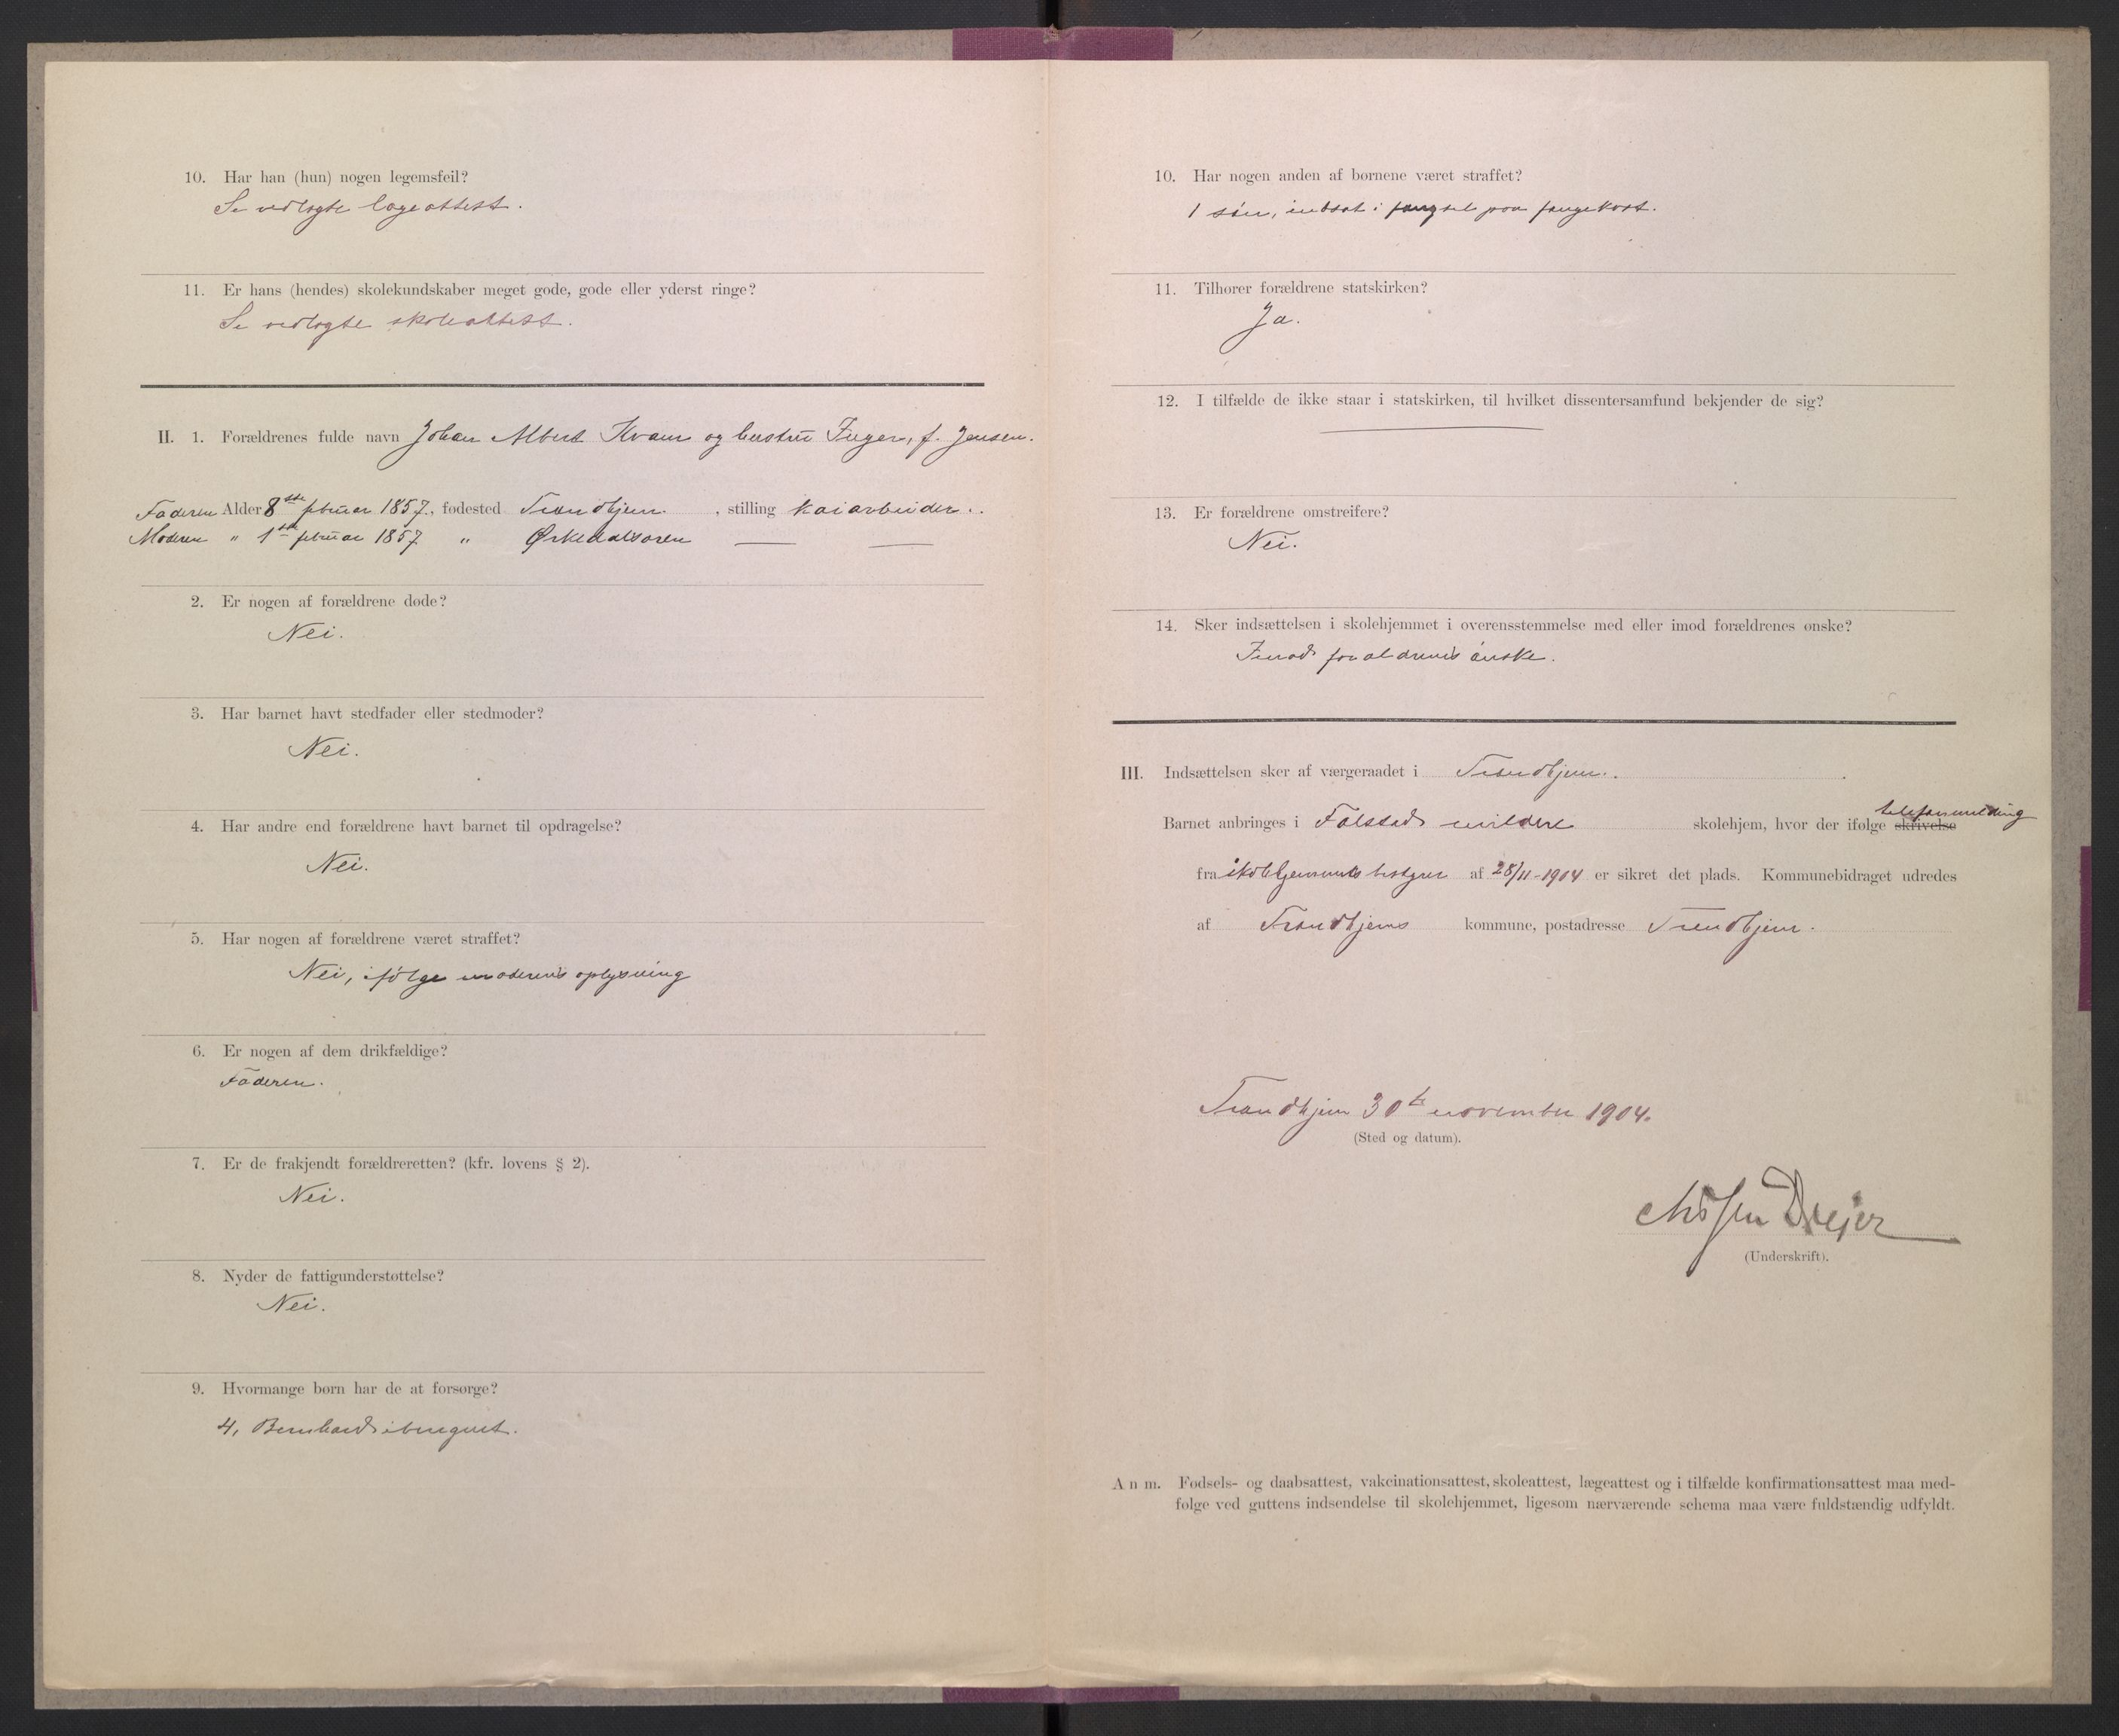 10. Har han (hun) nogen legemsfeil?
Se vedlagte lægeattest.
11. Er hans (hendes) skolekundskaber meget gode, gode eller yderst ringe?
Se vedlagte skoleattest.
II. 1. Forældrenes fulde navn Johan Albert Kvam og hustru Inger, f. Jensen.
Faderen Alder 8de februar 1857., fødested Trondhjem, stilling kaiarbeider..
Moderen " 1ste februar 1857 " Ørkedalsøren — —
2. Er nogen af forældrene døde?
Nei.
3. Har barnet havt stedfader eller stedmoder?
Nei.
4. Har andre end forældrene havt barnet til opdragelse?
Nei.
5. Har nogen af forældrene været straffet?
Nei, ifølge moderens oplysning
6. Er nogen af dem drikfældige?
Faderen.
7. Er de frakjendt forældreretten? (kfr. lovens § 2).
Nei.
8. Nyder de fattigunderstøttelse?
Nei.
9. Hvormange børn har de at forsørge?
4, Bernhard iberegnet.
10. Har nogen anden af børnene været straffet?
1 søn, indsat i fængsel paa fangekost.
11. Tilhører forældrene statskirken?
Ja.
12. I tilfælde de ikke staar i statskirken, til hvilket dissentersamfund bekjender de sig?
13. Er forældrene omstreifere?
Nei.
14. Sker indsættelsen i skolehjemmet i overensstemmelse med eller imod forældrenes ønske?
Imod forældrenes ønske.
III. Indsættelsen sker af værgeraadet i Trondhjem.
Barnet anbringes i Falstad mildere skolehjem, hvor der ifølge skrivelse telefonmelding
fra skolehjemmets bestyrer af 28/11-1904 er sikret det plads. Kommunebidraget udredes
af Trondhjems kommune, postadresse Trondhjem.
Trondhjem 30te november 1904.
(Sted og datum).
Dreyer
(Underskrift).
Anm. Fødsels- og daabsattest, vakcinationsattest, skoleattest, lægeattest og i tilfælde konfirmationsattest maa med-
følge ved guttens indsendelse til skolehjemmet, ligesom nærværende schema maa være fuldstændig udfyldt.